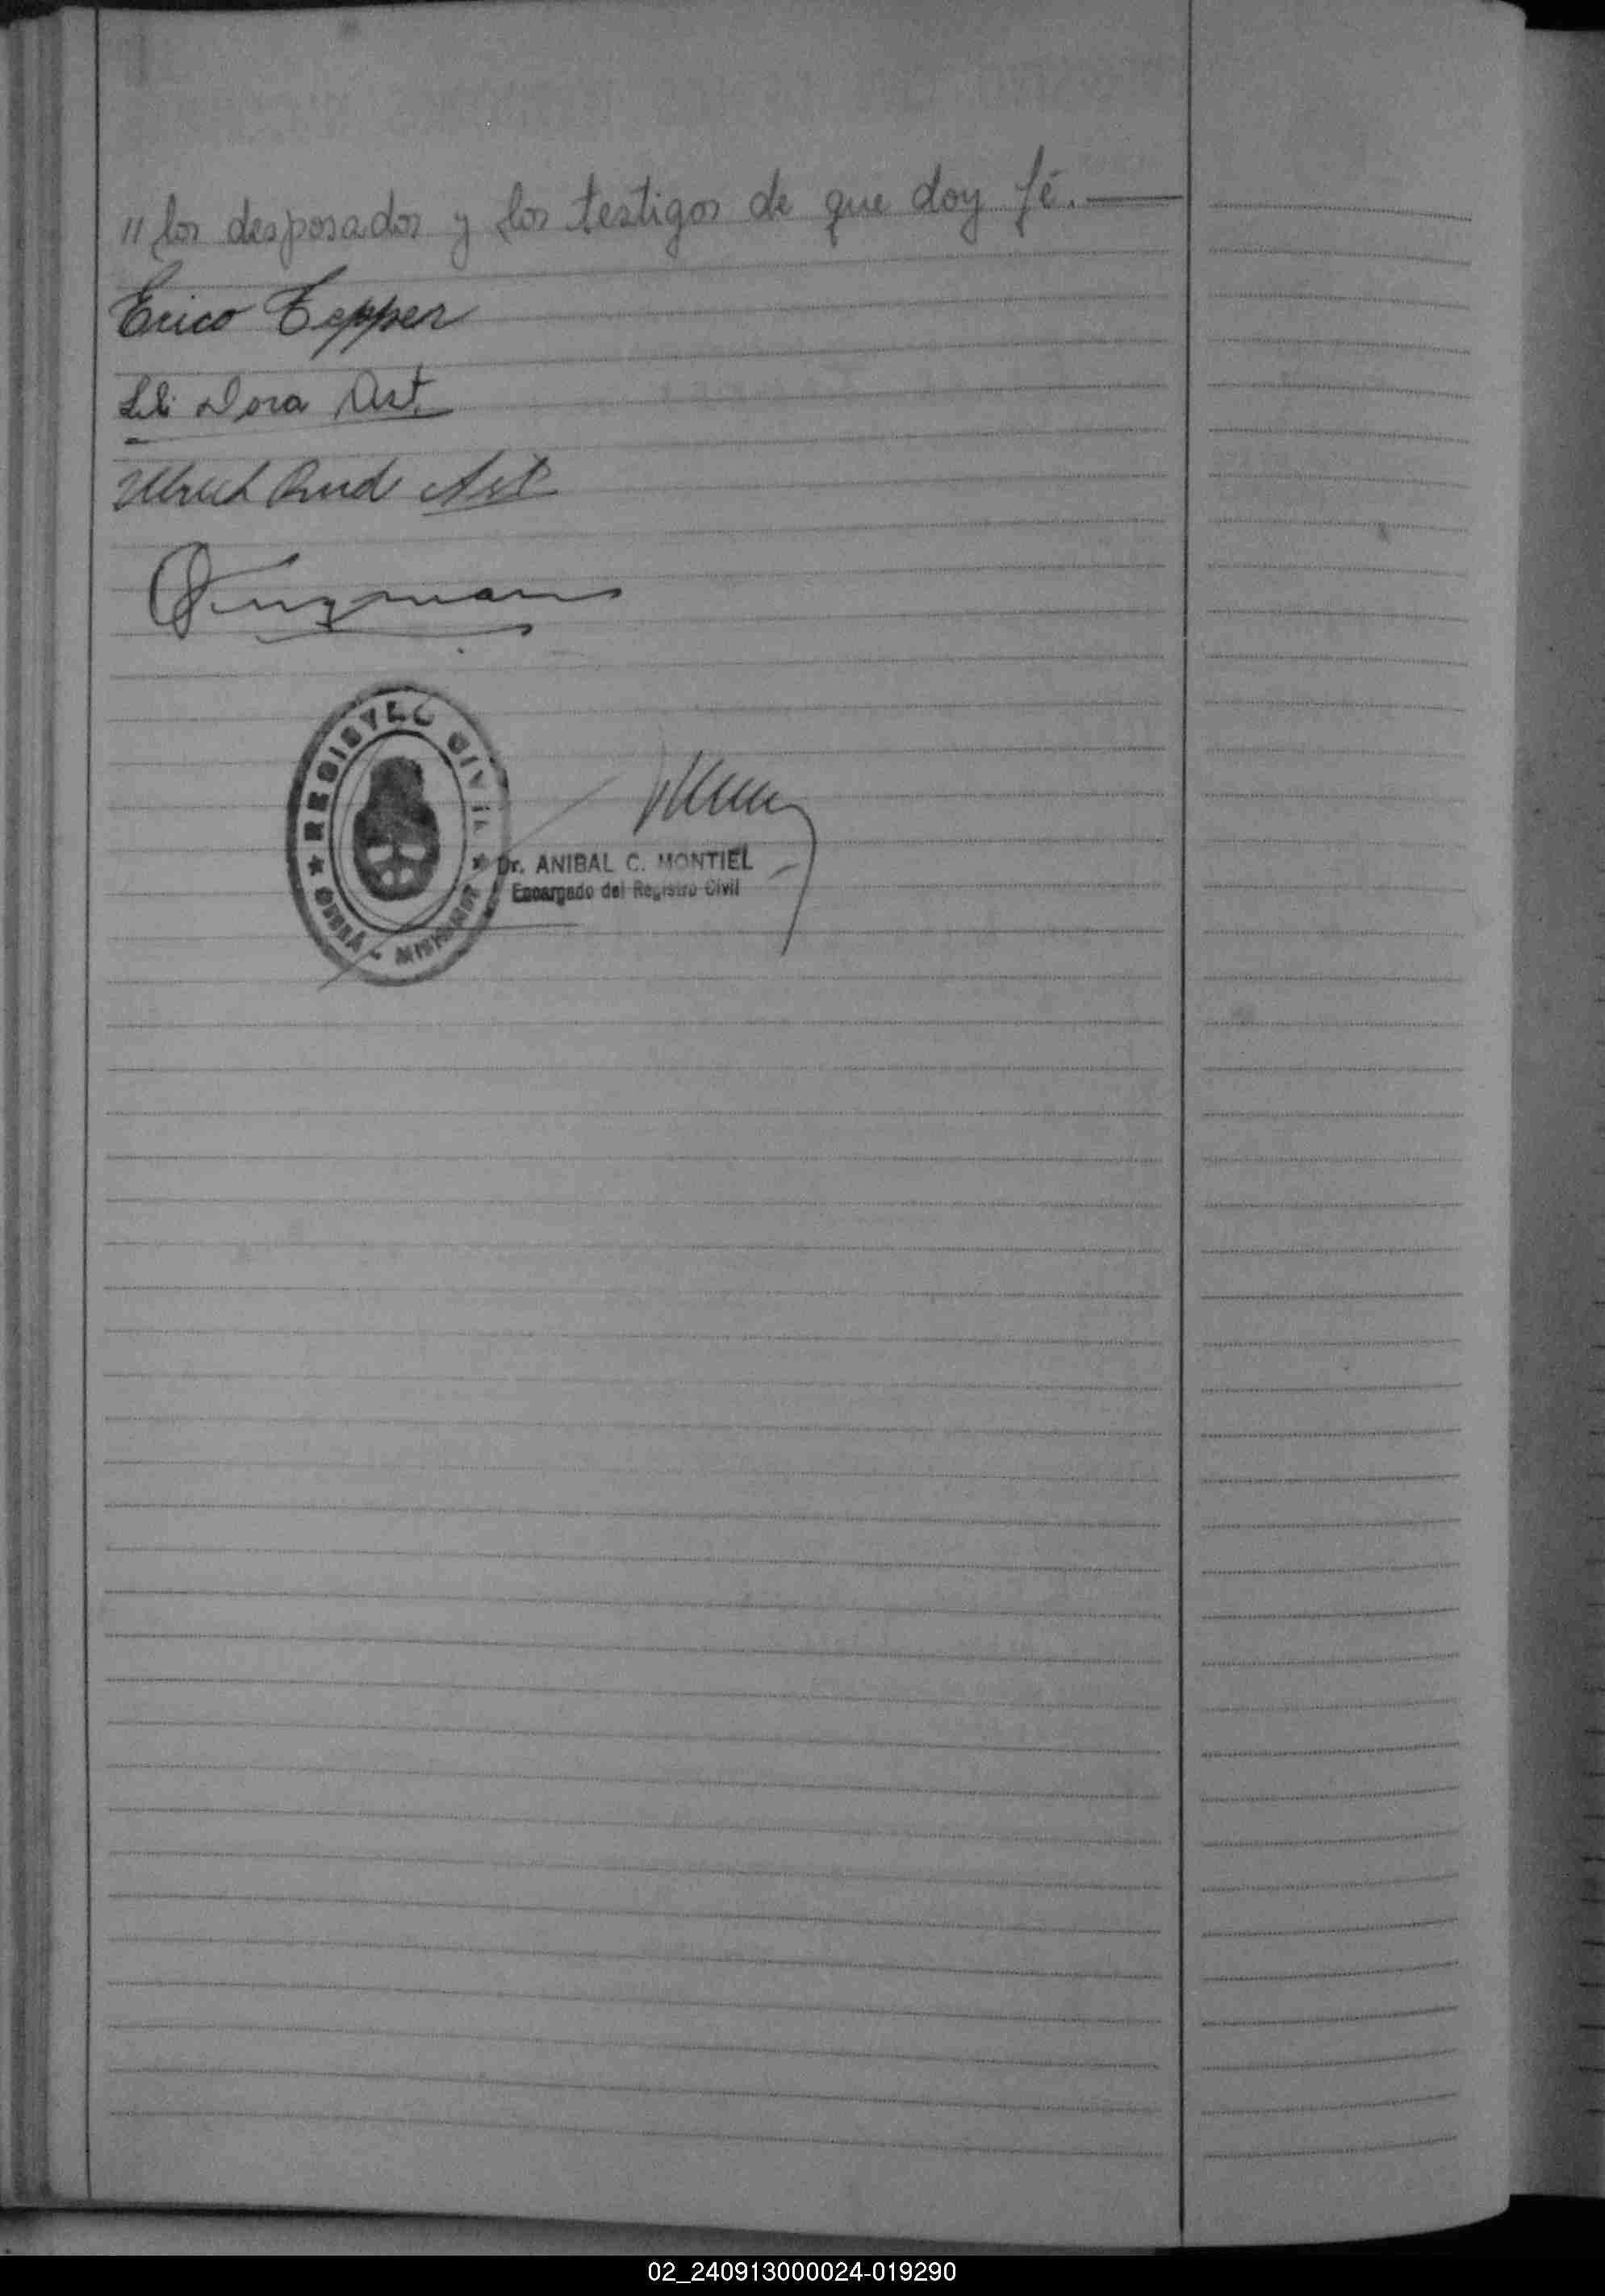 " los desposados y los testigos de que doy fé.
Erico Tepper
Lili Dora Ast.
Ast
REGISTRO CIVIL
OBERA - MISIONES
Dr. ANIBAL C. MONTIEL
Encargado del Registro Civil
02_240913000024-019290